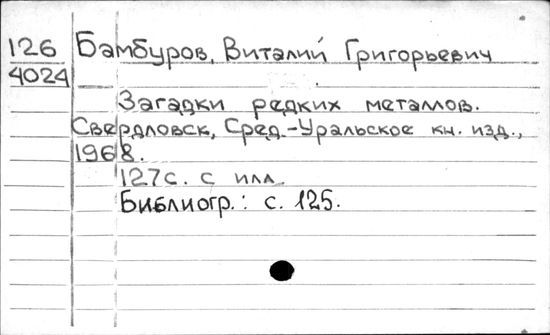 126 Бамбуров, Виталий Григорьевич
4024
Загадки редких металлов.
Свердловск, Сред.-Уральское кн. изд.,
1968.
127с. с илл.
Библиогр.: с. 125.